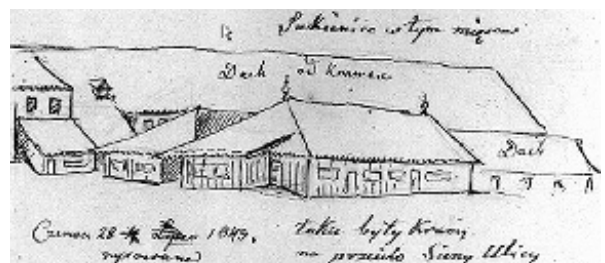 Sukiennice w tym miejscu
Dach od Kramów
Dach
Czerwca 28 1849.
rysowane
takie były Kramy
na przeciko Sieny Ulicy